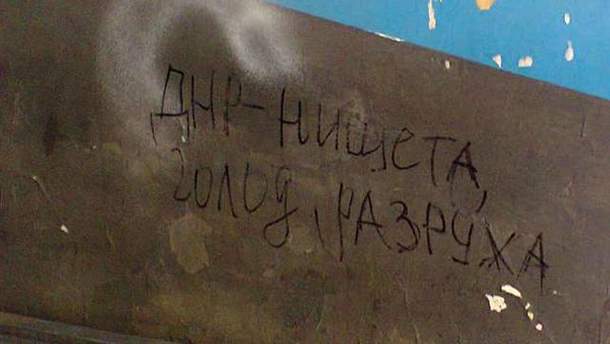 ДНР-НИЩЕТА,
ГОЛОД, РАЗРУХА